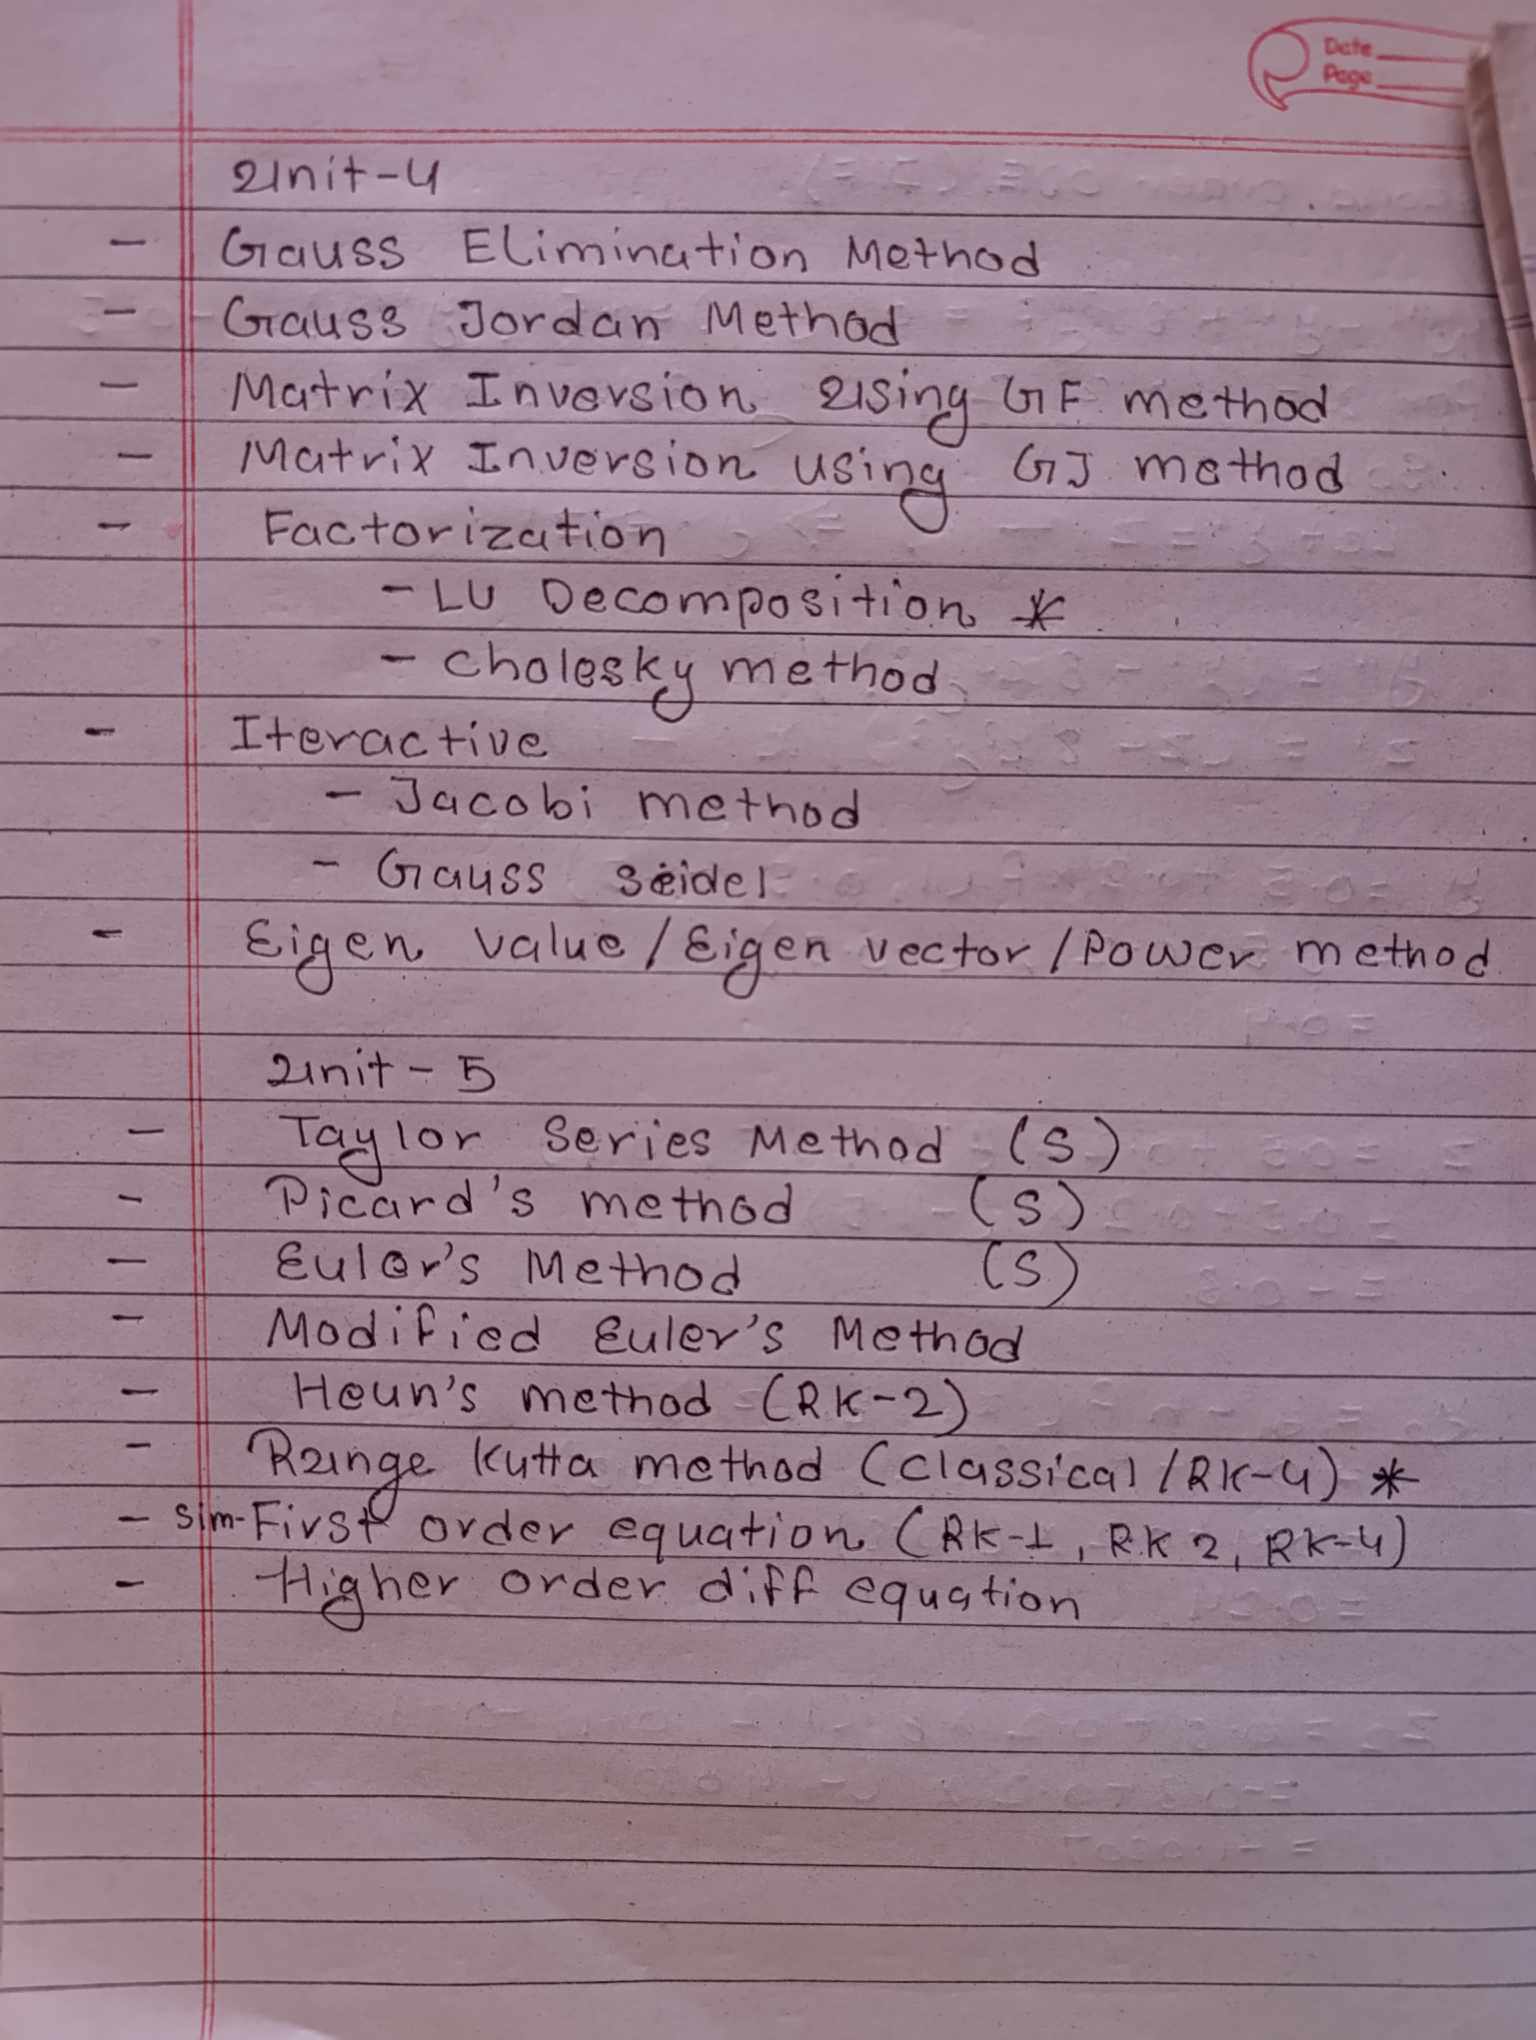 Date
Page
Unit-4
- Gauss Elimination Method
- Gauss Jordan Method
- Matrix Inversion Using GE method
- Matrix Inversion using GJ method
- Factorization
- LU Decomposition *
- Cholesky method
- Iteractive
- Jacobi method
- Gauss seidel
- Eigen value / Eigen vector / Power method
Unit - 5
- Taylor Series Method (S)
- Picard's method (S)
- Euler's Method (S)
- Modified Euler's Method
- Heun's method (RK-2)
- Runge Kutta method (classical / RK-4) *
- sim-First order equation (RK-1, RK 2, RK-4)
- Higher order diff equation